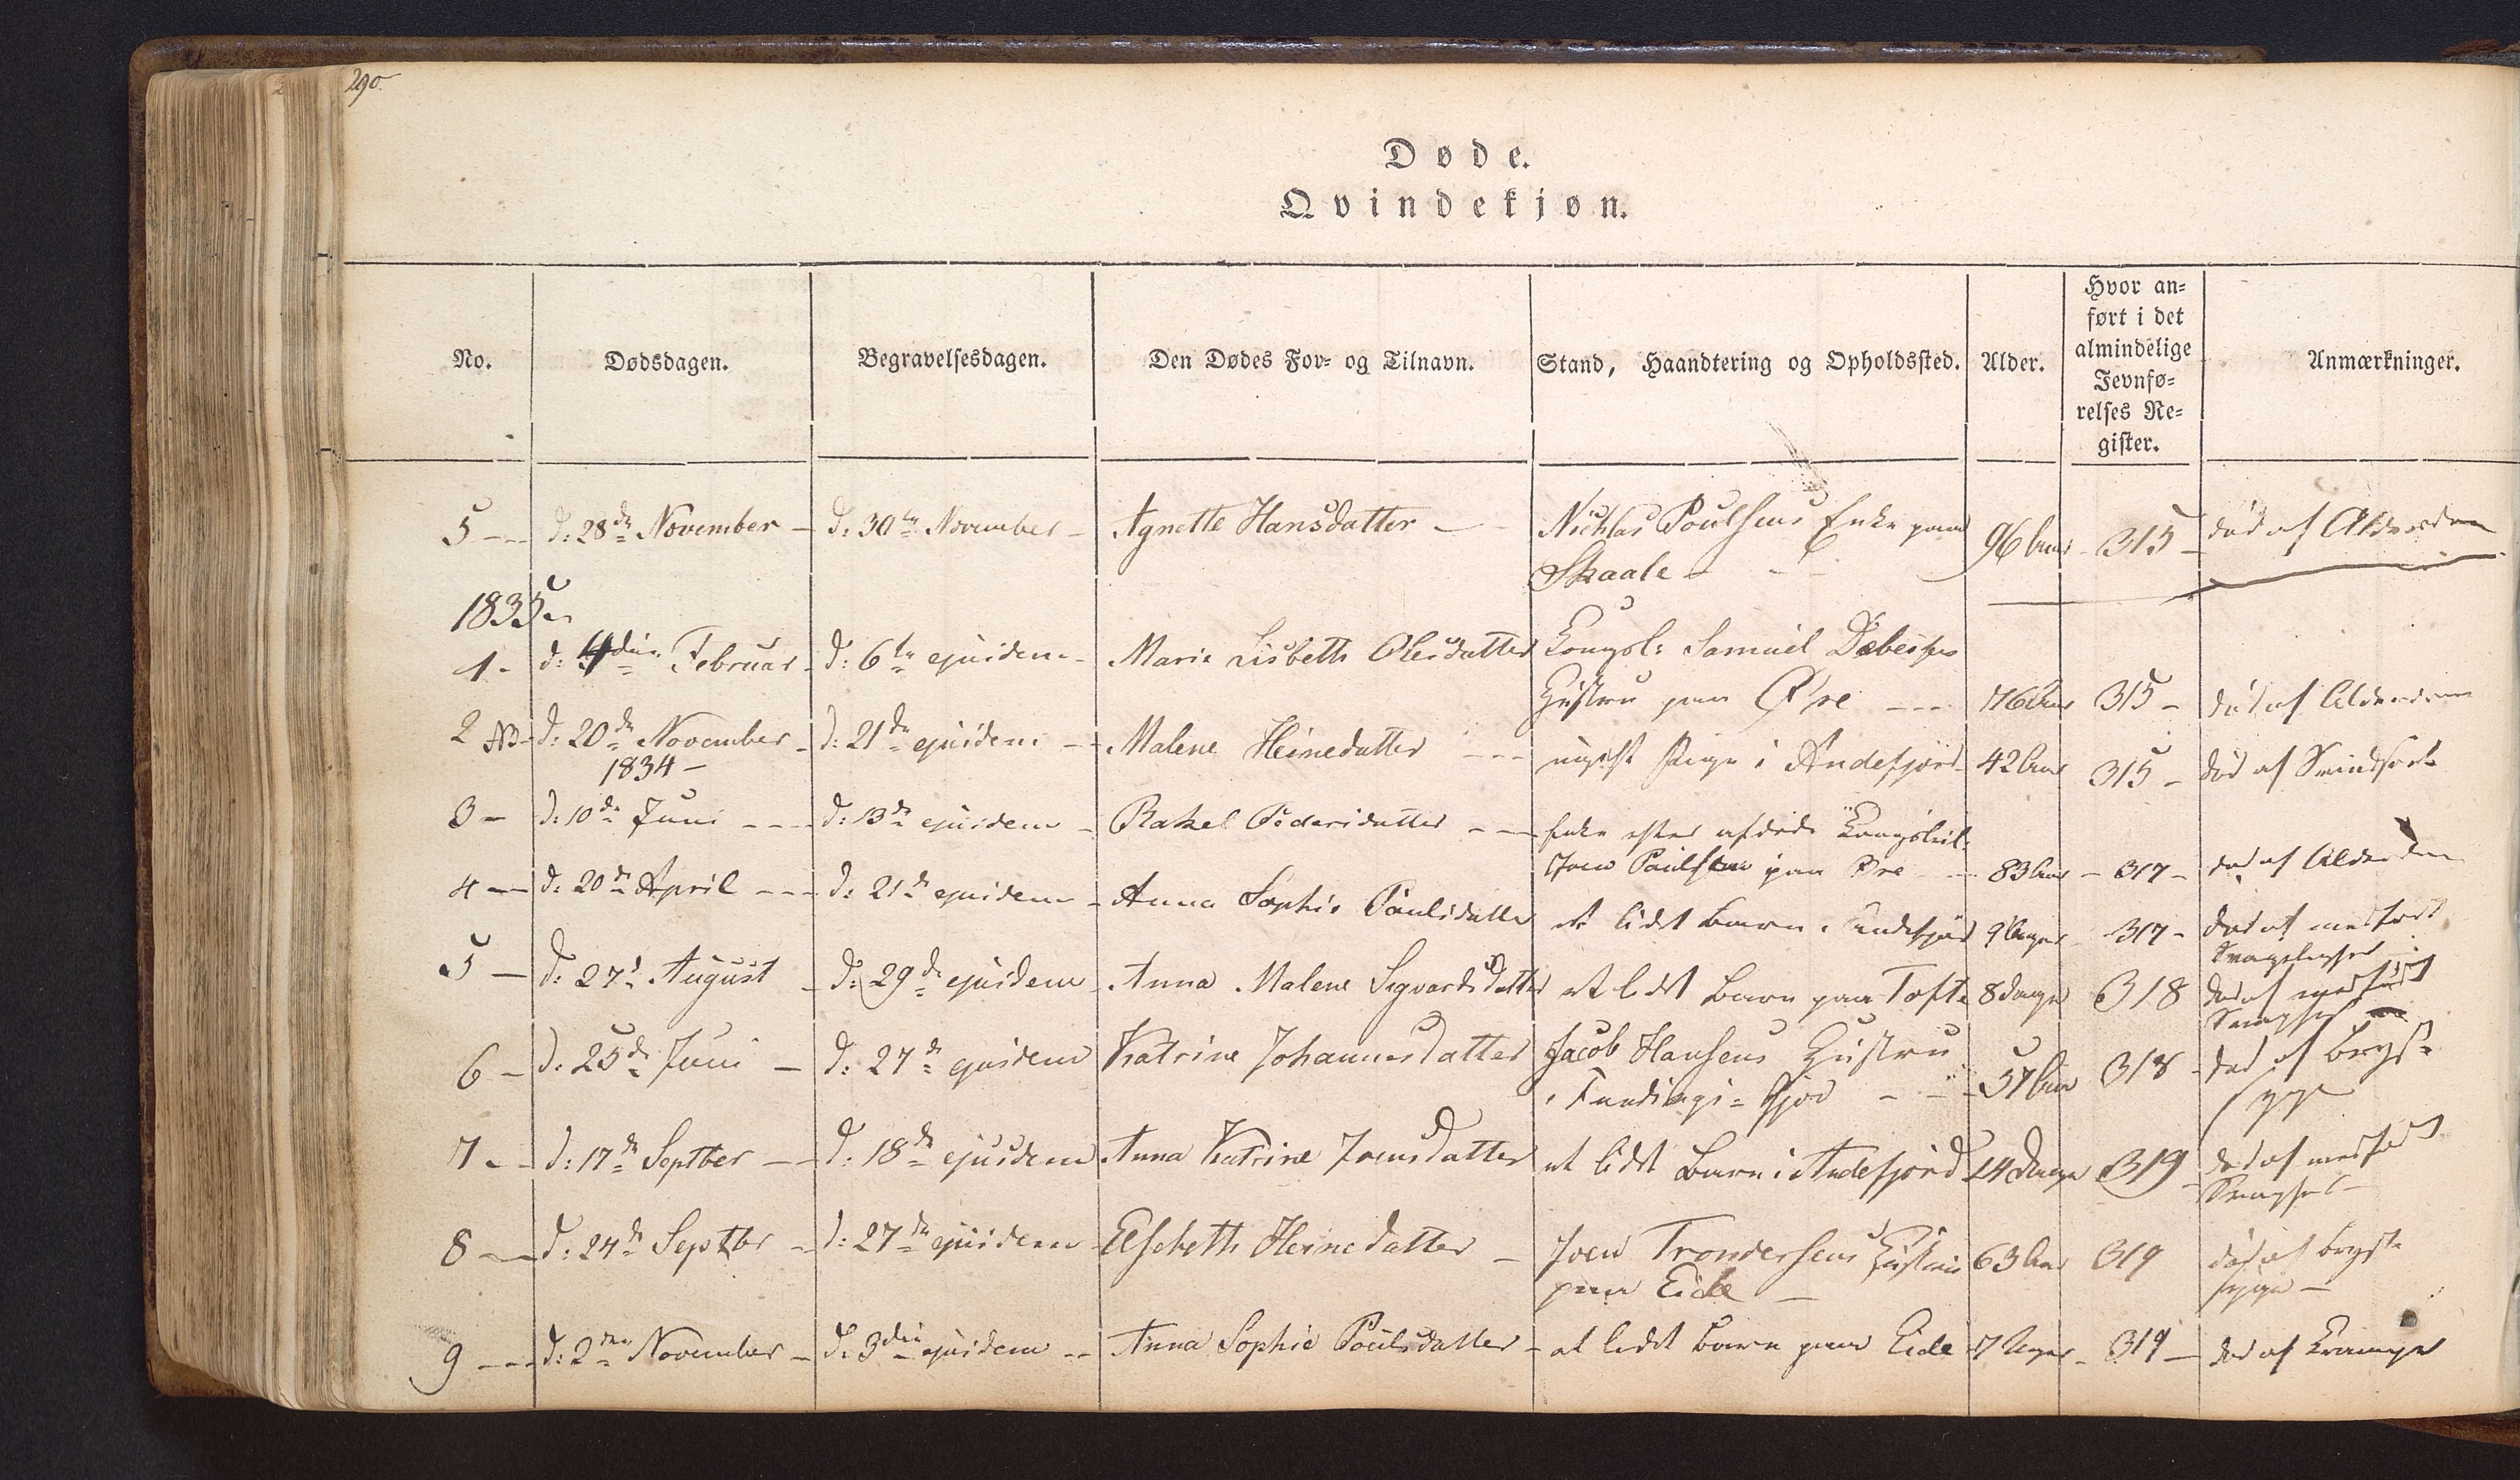 290.
Døde.
Qvindekjøn.
No. Dødsdagen. Begravelsesdagen. Den Dødes For- og Tilnavn. Stand, Haandtering og Opholdssted. Alder. Hvor an-
ført i det
almindelige
Jevnfø-
relses Re-
gister. Anmærkninger.
5 d: 28de November d: 30te November Agnette Hansdatter Nichlas Poulsens Enke paa
Skaale 96 Aar 315 død af Alderdom
1835
1 d: 4din Februar d: 6te ejusdem Marie Lisbeth Olesdatter Kongsb: Samuel Debesses
Hustru paa Øre 76 Aar 315 død af Alderdom
2 NB d: 20de November
1834 d: 21de ejusdem Malene Heinedatter ugift Pige i Andefjord 42 Aar 315 død af Svindsot
3 d: 10de Juni d: 13de ejusdem Rakel Pedersdatter Enke efter afdøde Kongsb:
Joen Poulsen paa Øre 83 Aar 317 død af Alderdom
4 d: 20de April d: 21de ejusdem Anna Sophie Poulsdatter et lidet Barn i Andefjord 9 Uger 317 død af medfødt
Svagelighed
5 d: 27d August d: 29de ejusdem Anna Malene Sigvardsdatter et lidet Barn paa Tofte 8 Dage 318 død af medfødt
Svaghed
6 d: 25de Juni d: 27de ejusdem Katrine Johannesdatter Jacob Hansens Hustru
i Fundings=fjord 57 Aar 318 død af Bryst=
syge
7 d: 17de Septber d: 18de ejusdem Anna Katrine Joensdatter et lidet Barn i Andefjord 14 Dage 319 død af medfødt
Svaghed
8 d: 24de Septbr d: 27de ejusdem Elsebeth Heinedatter Joen Trondersens Hustru
paa Eide 63 Aar 319 død af Bryst
syge
9 d: 2den November d: 3die ejusdem Anna Sophie Poulsdatter et lidet Barn paa Eide 7 Uger 319 død af Krampe